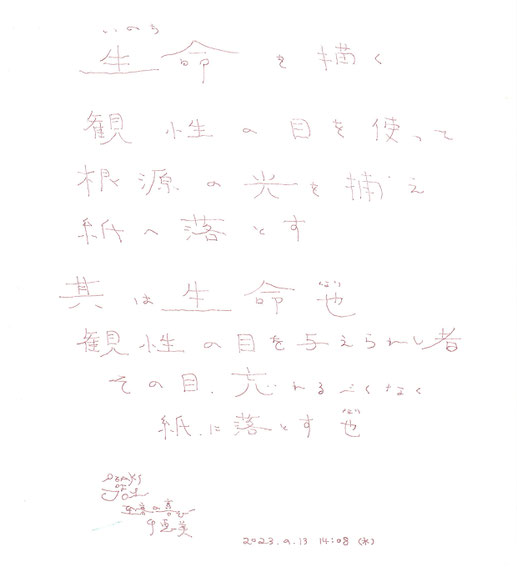 いのち
生命を描く
観性の目を使って
根源の光を捕え
紙へ落とす
なり
其は生命也
観性の目を与えられし者
その目、忘れることなく
なり
紙に落とす也
JOY
2023.9.13 14:08 (水)